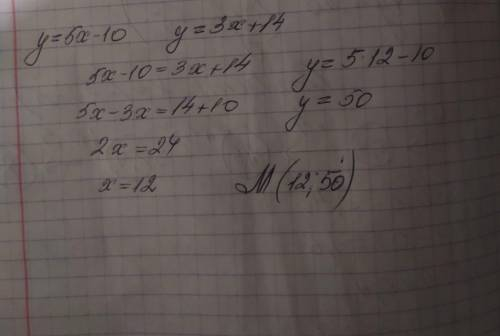 y=5x-10 y=3x+14
5x-10=3x+14 y=5·12-10
5x-3x=14+10 y=50
2x=24
x=12 M(12;50)